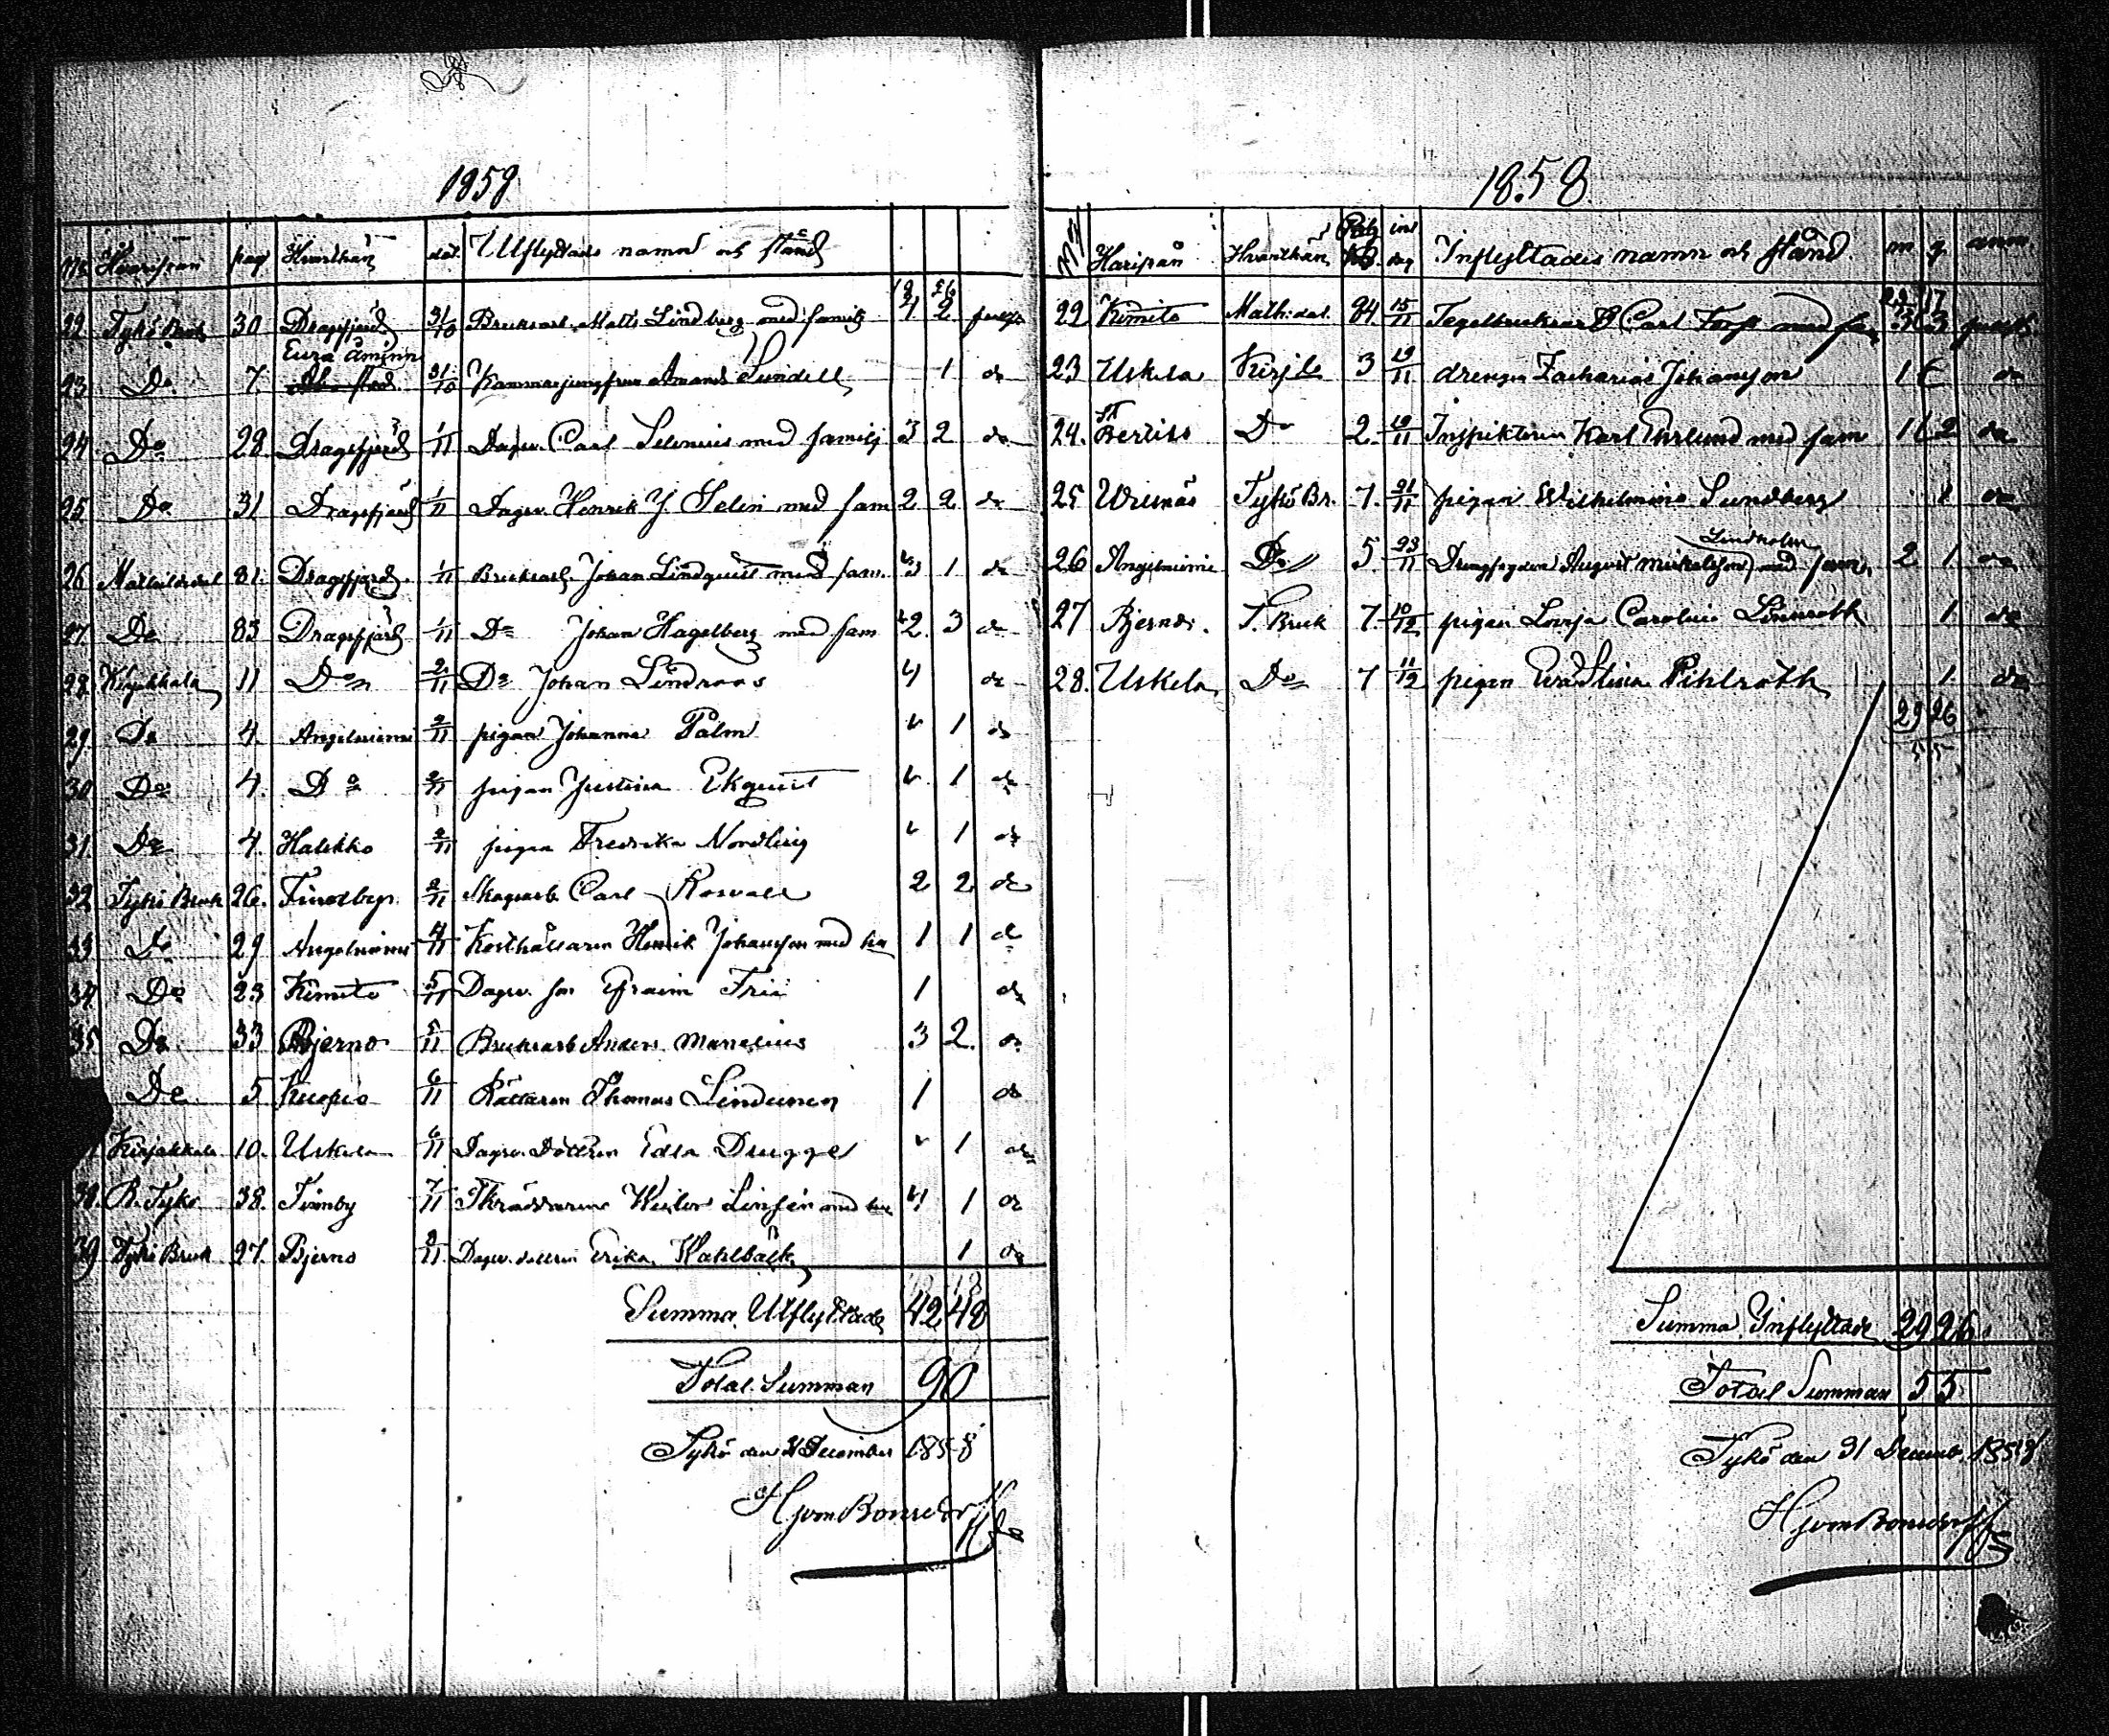 1858
No Hvarifrån pag Hvarthän dat. Utflyttades namn och stånd
22 Tykö Bruk 30 Dragsfjerd 31/10 Bruksarb. Matts Lindberg med familj 4 2
23 Do 7. Eura Åminne 31/10 Kammarjungfrun Amanda Sundell 1 do
24 Do 28. Dragsfjerd 1/11 Dagsv. Carl Selenius med familj 3 2 do
25 Do 31 Dragsfjerd 1/11 Dagsv. Henrik J Selin med fam 2 2 do
26 Mathildedal 81. Dragsfjerd 1/11 Bruksarb. Johan Lindquist med fam. 3 1 do
27 Do 83 Dragsfjerd 1/11 Do Johan Hagelberg med fam 2 3 do
28 Kirjakkala 11 Do 2/11 Do Johan Lindroos 4 do
29 Do 4. Angelniemi 2/11 pigan Johanna Palm 1 do
30 Do 4. Do 2/11 pigan Justina Ekquist 1 do
31. Do 4. Halikko 2/11 pigan Fredrika Nordling 1 do
32 Tykö Bruk 26. Finnby 2/11 Skogsarb Carl Rosvall 2 2 do
33 Do 29 Angelniemi 4/11 Kosthållaren Henrik Johansson med hu 1 1 do
34 Do 23 Kimito 5/11 Dagsv. son Efraim Frii 1 do
35 Do 33 Bjerno 5/11 Bruksarb Anders Manelius 3 2. do
Do 5 Kuopio 6/11 Rättaren Thomas Lindunen 1 do
Kirjakkala 10. Uskela 6/11 Dagsv. Dottren Edla Drugge 1 do
38. B. Tykö 38. Finnby 7/11 Skräddaren Linsen med hu 4 1 do
39 Tykö Bruk 27. Bjerno 9/11. Dagsv. dottren Erika Wahlbäck 1 do
Summa Utflyttade 42 48
Total Summan 90
Tykö den 31 December 1858
HJvonBonsdorff
1858
No Harifrån Hvarthän dag Inflyttades namn och stånd. m q anm.
22 Kimito Math:dal. 84 15/11 Carl Forss med fam 3 3
23 Uskela Kirjile 3 19/11 drengen Zacharias Johansson 1 do
24. St Bertils Do 2. 19/11 Inspektoren Karl Ehrlund med fam 1 2 do
25 Ulrisnäs Tykö Br. 7. 21/11 pigan Wilhelmina Sundberg 1 do
Lindholm
26 Angelniemi Do 5. 23/11 Drengfogden August Mickelsson med fam. 2 1 do
27 Bjerno. T. Bruk 7. 10/12 pigan Lovisa Carolina Lönnroth 1 do
28. Uskela Do 7 11/12 pigen Eva Stina Pihlroth 1 do
29 26
55
Summa Inflyttade 29 26
Total Summan 55
Tykö den 31 Decemb. 1858
HJvonBonsdorff